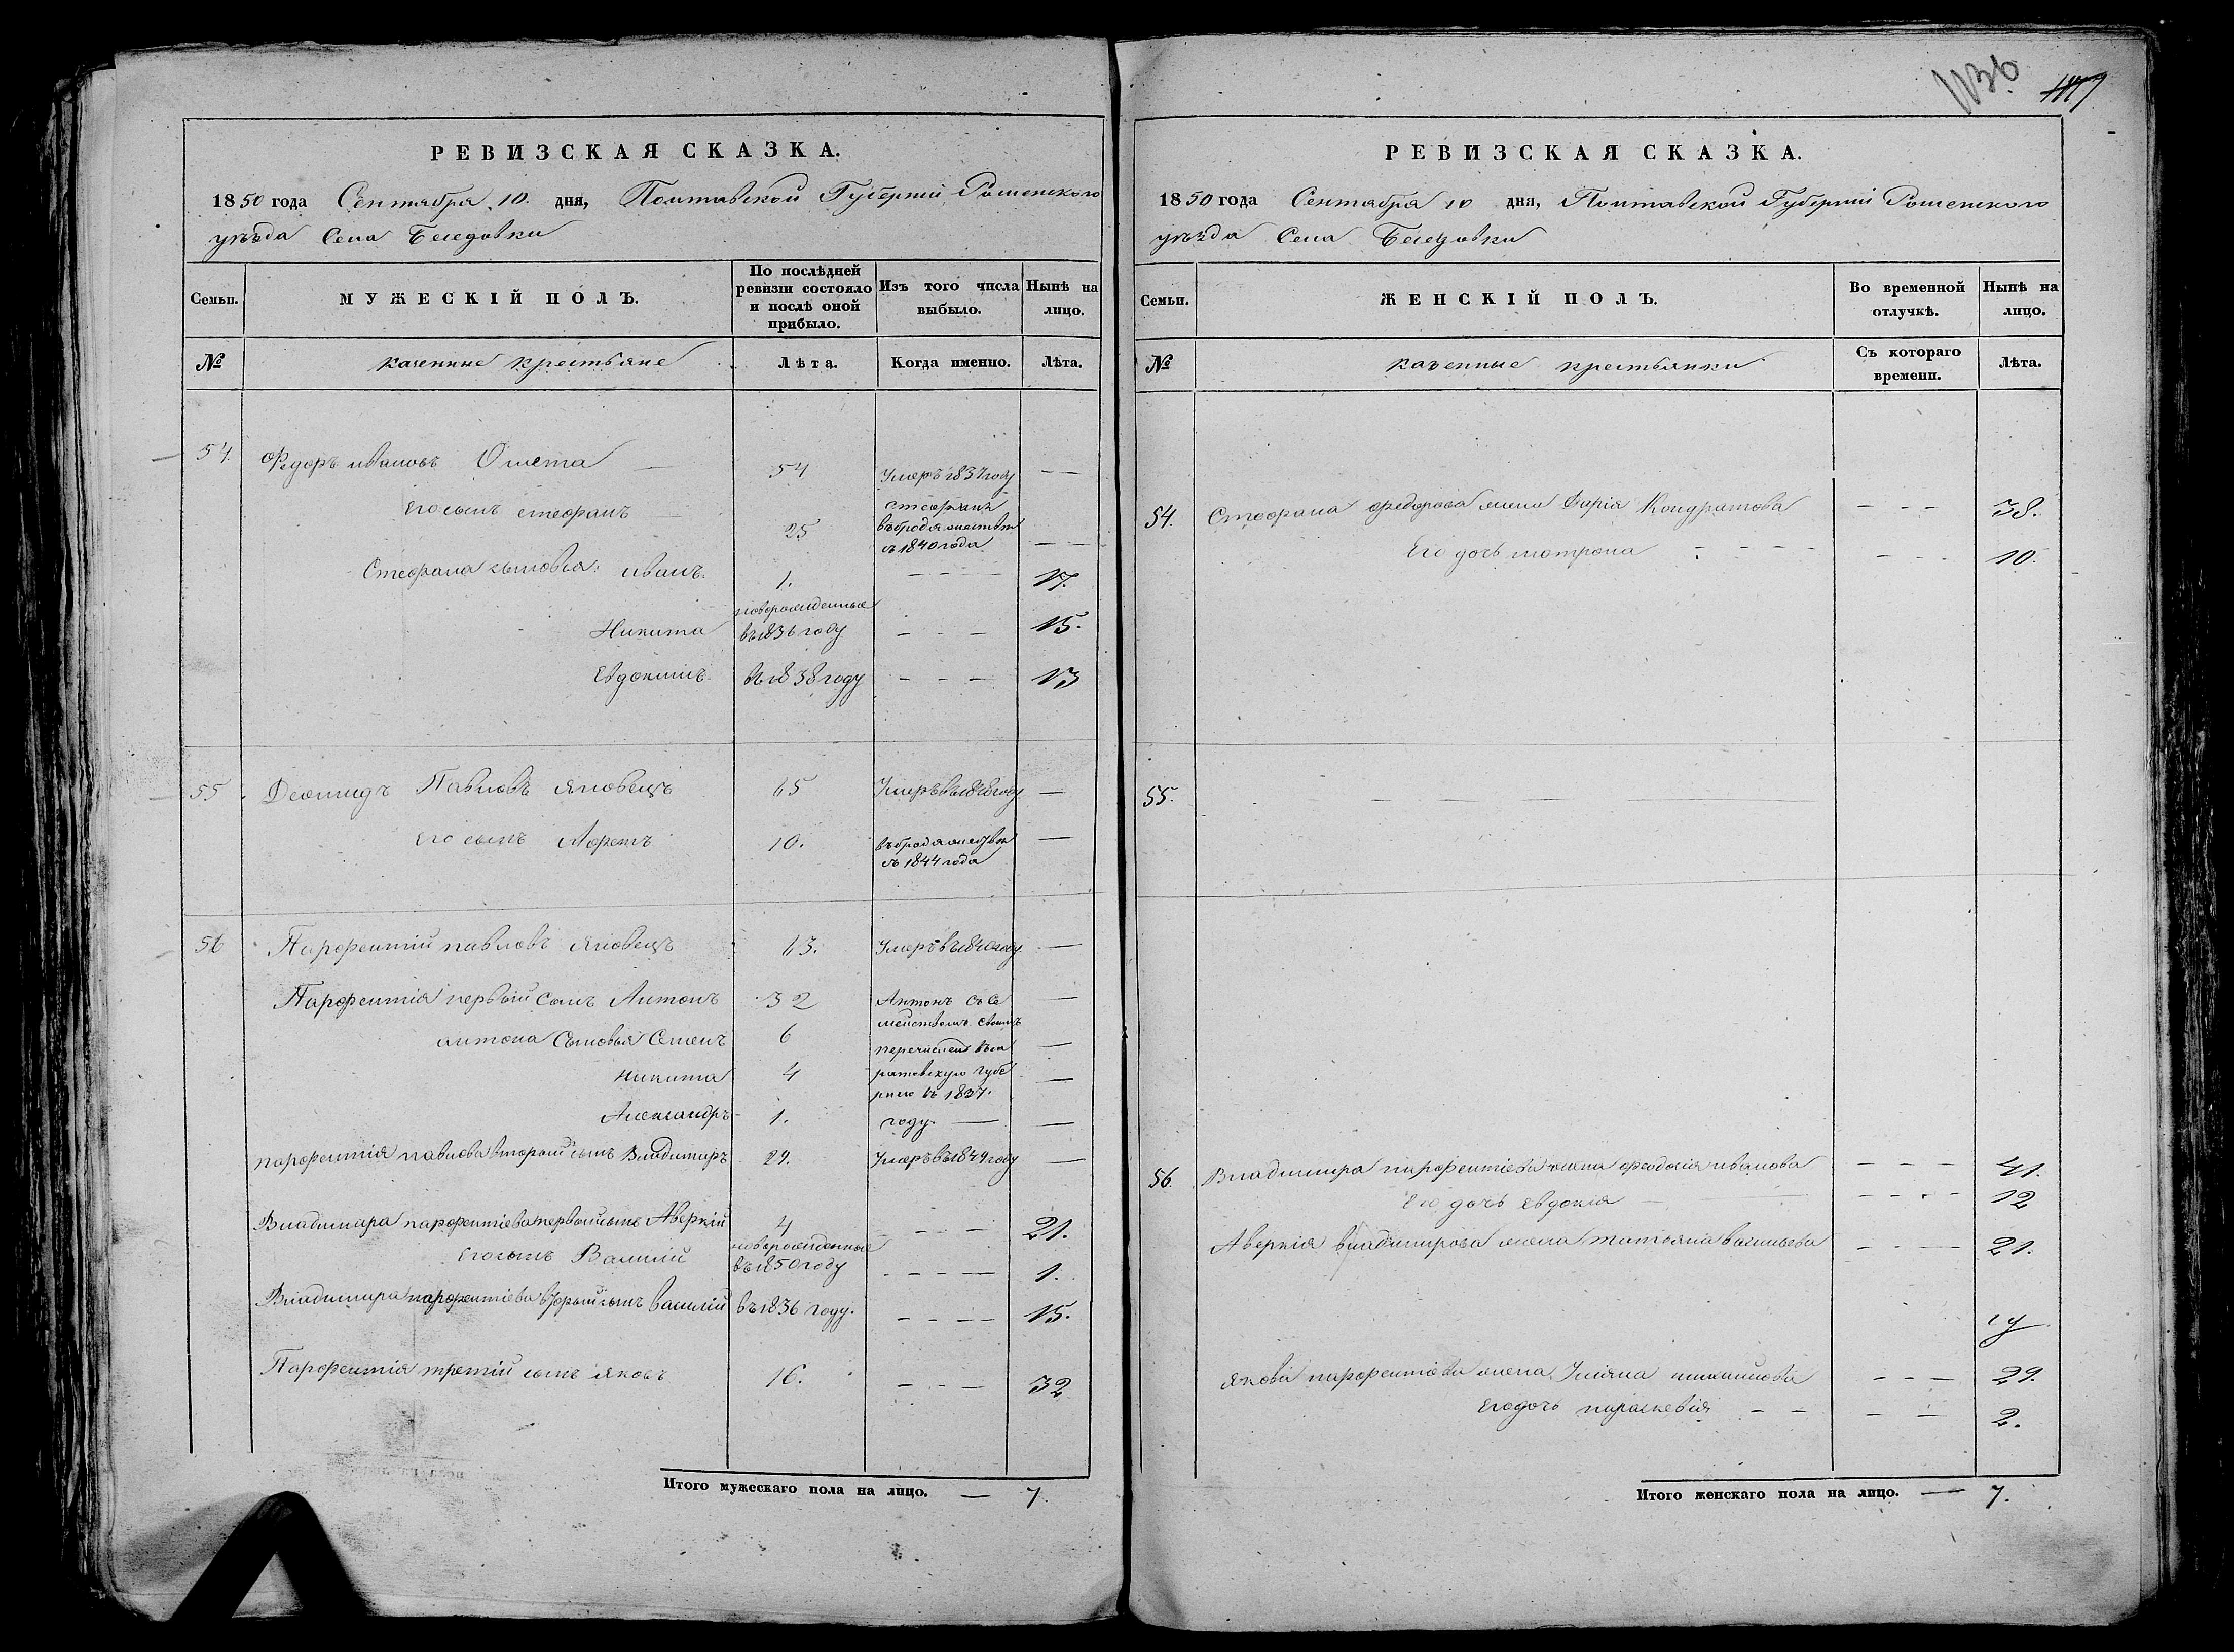 РЕВИЗСКАЯ СКАЗКА.
1850 года Сентября 10. дня, Полтавской Губерніи Роменского
уезда Села Беседовки
Семьи. МУЖЕСКІЙ ПОЛЪ. По послѣдней ревизіи состояло и послѣ оной прибыло. Изъ того числа выбыло. Нынѣ на лицо.
№ казенные крестьяне Лѣта. Когда именно. Лѣта.
54. Федоръ ивановъ Омета — 54 Умеръ 1837 году —
Его сынъ стефанъ — 25 стефанъ въ бродяжестве съ 1840 года —
Стефана сыновья: иванъ. 1. — 17.
Никита новорожденные въ 1836 году — 15.
Евдокимъ. въ 1838 году — 13
55 Деомидъ Павловъ яковецъ 65 —
Его сынъ 10. въ бродяжестве съ 1844 года —
56 Парфентій павловъ яковецъ 63. Умеръ въ 1840 году —
Парфентія первый сынъ Антонъ 32 Антонъ съ се —
мействомъ своимъ
антона Сыновья Семенъ 6 перечисленъ —
никита 4 ратовскую губе —
рнию въ 1837.
Александръ 1. году. — —
парфентія павлова вторый сынъ Владимиръ 29. Умеръ въ 1849 году —
Владимира парфентіева первый сынъ Аверкій 4 — 21.
Его сынъ Василій новорожденные въ 1850 году — 1.
Владимира парфентіева вторый сынъ василій въ 1836 году. — 15.
Парфентія третій сынъ яковъ 16. — 32
Итого мужескаго пола на лицо. — 7.
РЕВИЗСКАЯ СКАЗКА.
1850 года Сентября 10 дня, Полтавской Губерніи Роменского
уезда Села Беседовки
Семьи. ЖЕНСКІЙ ПОЛЪ. Во временной отлучкѣ. Нынѣ на лицо.
№ казенные крестьянки Съ котораго времени. Лѣта.
54. Стефана федорова жена Дарія Кондратова — 38.
Его дочь мотрона — 10.
55. —
56. Владимира парфентіева жена феодосія иванова — 41.
Его дочь Евдокія — 12
Аверкія владимирова жена татьяна васильева — 21.
якова парфентіева жена Уліяна — 29.
Его дочь параскевія — 2.
Итого женскаго пола на лицо. — 7.